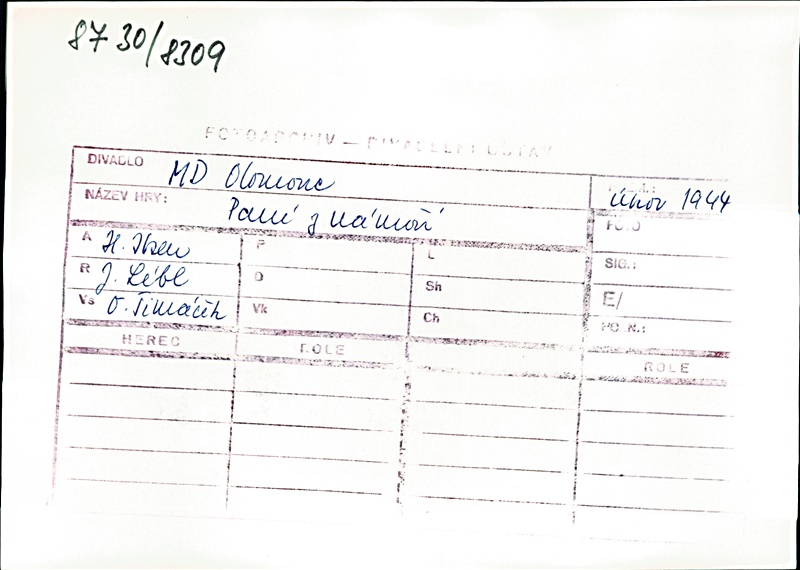 8730/8309
FOTOARCHIV — DIVADELNÍ ÚSTAV
DIVADLO MD Olomouc
únor 1944
NÁZEV HRY: Paní z námoří
FOTO
A H. Ibsen P L
SIG.:
R J. Lébl O Sh
E/
Vs O. Šimáček Vk Ch
POZN.:
HEREC ROLE ROLE